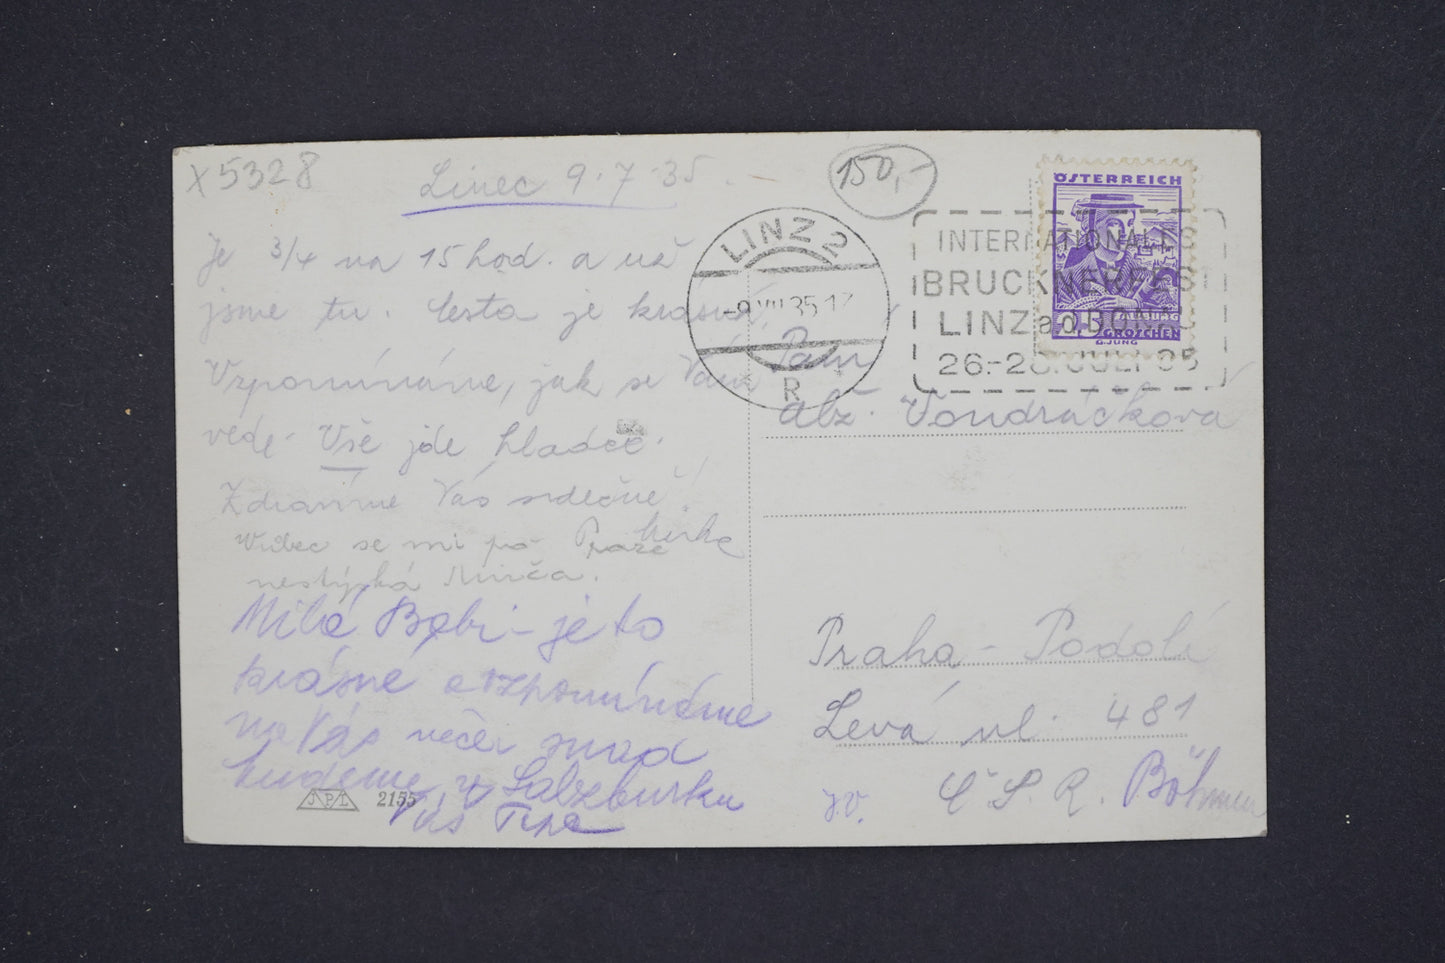 x 5328
Linec 9.7.35.
150,-
Je 3/4 na 15 hod. a už
jsme tu. Cesta je krásná,
Vzpomínáme, jak se Vám
vede. Vše jde hladce.
Zdravíme Vás srdečně!
Mirka
Vůbec se mi po Praze
nestýská Mirča.
Milá Bobi - je to
krásné a vzpomínáme
na Vás večer snad
budeme v Salzburku
Vás
JPL 2155
LINZ 2
-9.VII.35.17
R
INTERNATIONALES
BRUCKNERFEST
LINZ a.d. DONAU
26.-28. JULI 35
ÖSTERREICH
SALZBURG
GROSCHEN
G. JUNG
Paní
alž. Vondráčková
Praha - Podolí
Levá ul. 481
Č.S.R. Böhmen